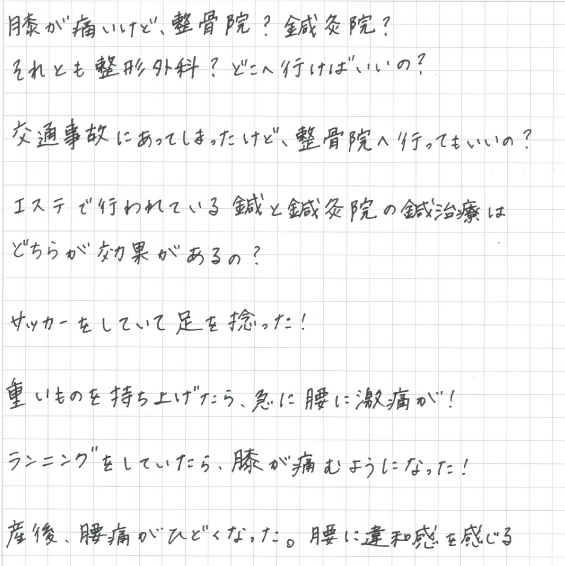 膝が痛いけど、整骨院？鍼灸院？
それとも整形外科？どこへ行けばいいの？
交通事故にあってしまったけど、整骨院へ行ってもいいの？
エステで行われている鍼と鍼灸院の鍼治療は
どちらが効果があるの？
サッカーをしていて足を捻った！
重いものを持ち上げたら、急に腰に激痛が！
ランニングをしていたら、膝が痛むようになった！
産後、腰痛がひどくなった。腰に違和感を感じる